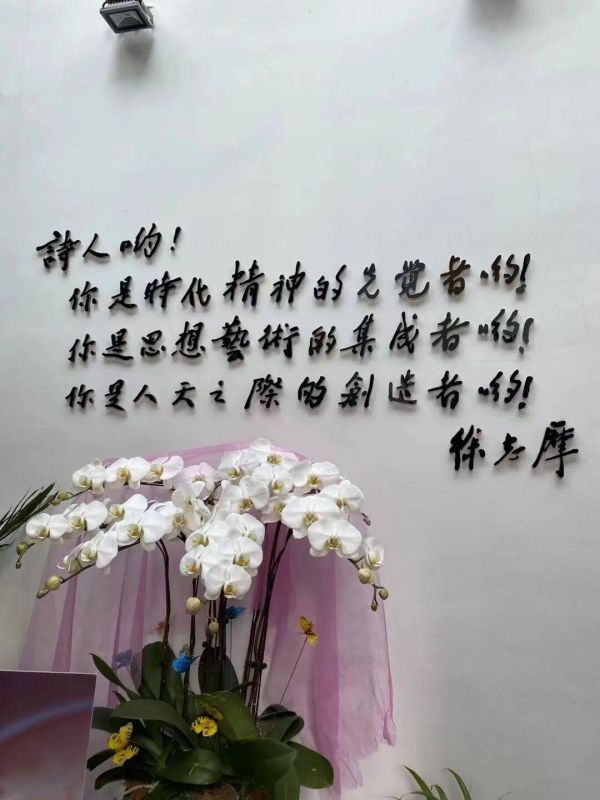 詩人哟！
你是時代精神的先覺者哟！
你是思想藝術的集成者哟！
你是人天之際的創造者哟！
徐志摩